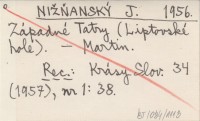 NIŽŇANSKÝ J. 1956.
Západné Tatry (Liptovské
hole). — Martin.
Rec.: Krásy Slov. 34
(1957), nr 1: 38.